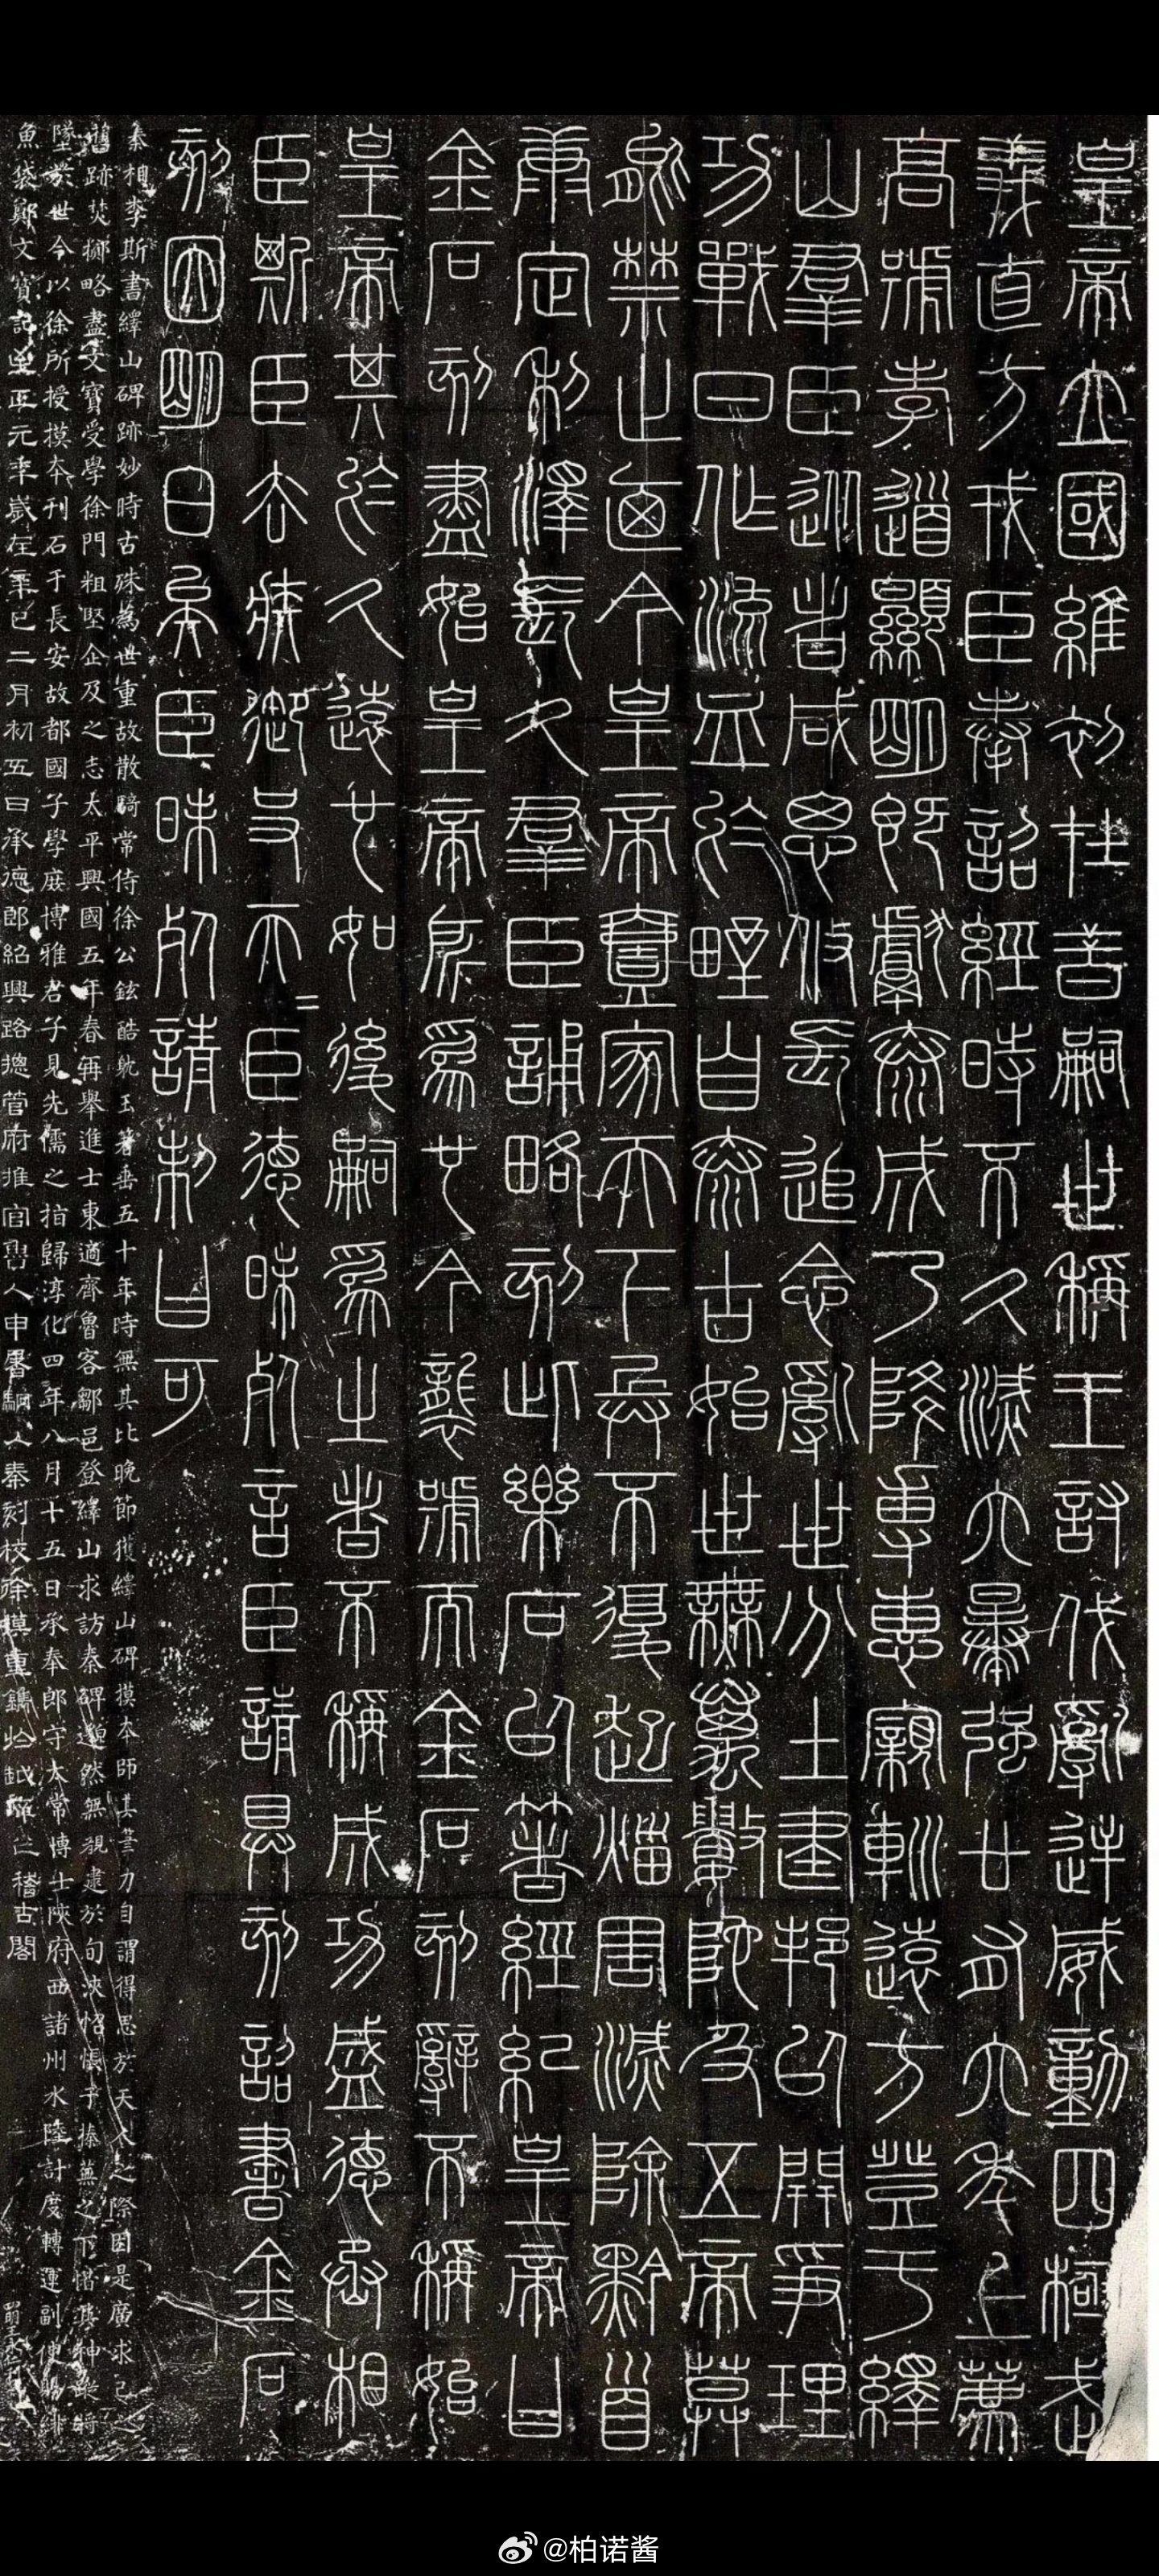 皇帝立國維初在昔嗣世稱王討伐亂逆威動四極武
義直方戎臣奉詔經時不久滅六暴強廿有六年上薦
高號孝道顯明既獻泰成乃降尃惠親巡遠方登于繹
山羣臣從者咸思攸長追念亂世分土建邦以開爭理
功戰日作流血於野自泰古始世無萬數陀及五帝莫
能禁止迺今皇帝壹家天下兵不復起災害滅除黔首
康定利澤長久羣臣誦略刻此樂石以著經紀皇帝曰
金石刻盡始皇帝所為也今襲號而金石刻辭不稱始
皇帝其於久遠也如後嗣為之者不稱成功盛德丞相
臣斯臣去疾御史夫=臣德昧死言臣請具刻詔書金石
刻因明白矣臣昧死請制曰可
秦相李斯書繹山碑跡妙時古殊為世重故散騎常侍徐公鉉酷躭玉著垂五十年時無其比晚節獲繹山碑摸本師其筆力自謂得思於天人之際因是廣求己之
舊跡焚擲略盡文寶受學徐門粗堅企及之志太平興國五年春再舉進士東適齊魯客鄒邑登繹山求訪秦碑邈然無覩逮於旬浹怊悵于榛蕪之下惜其神蹤將
墜於世今以徐所授摸本刊石于長安故都國子學庶博雅君子見先儒之指歸淳化四年八月十五日承奉郎守太常博士陝府西諸州水陸計度轉運副使賜緋
魚袋鄭文寶記至正元年歲在辛巳二月初五日承德郎紹興路摠管府推官嶧人申屠駉以秦刻校徐摸重鐫於越庠之稽古閣
@柏诺酱